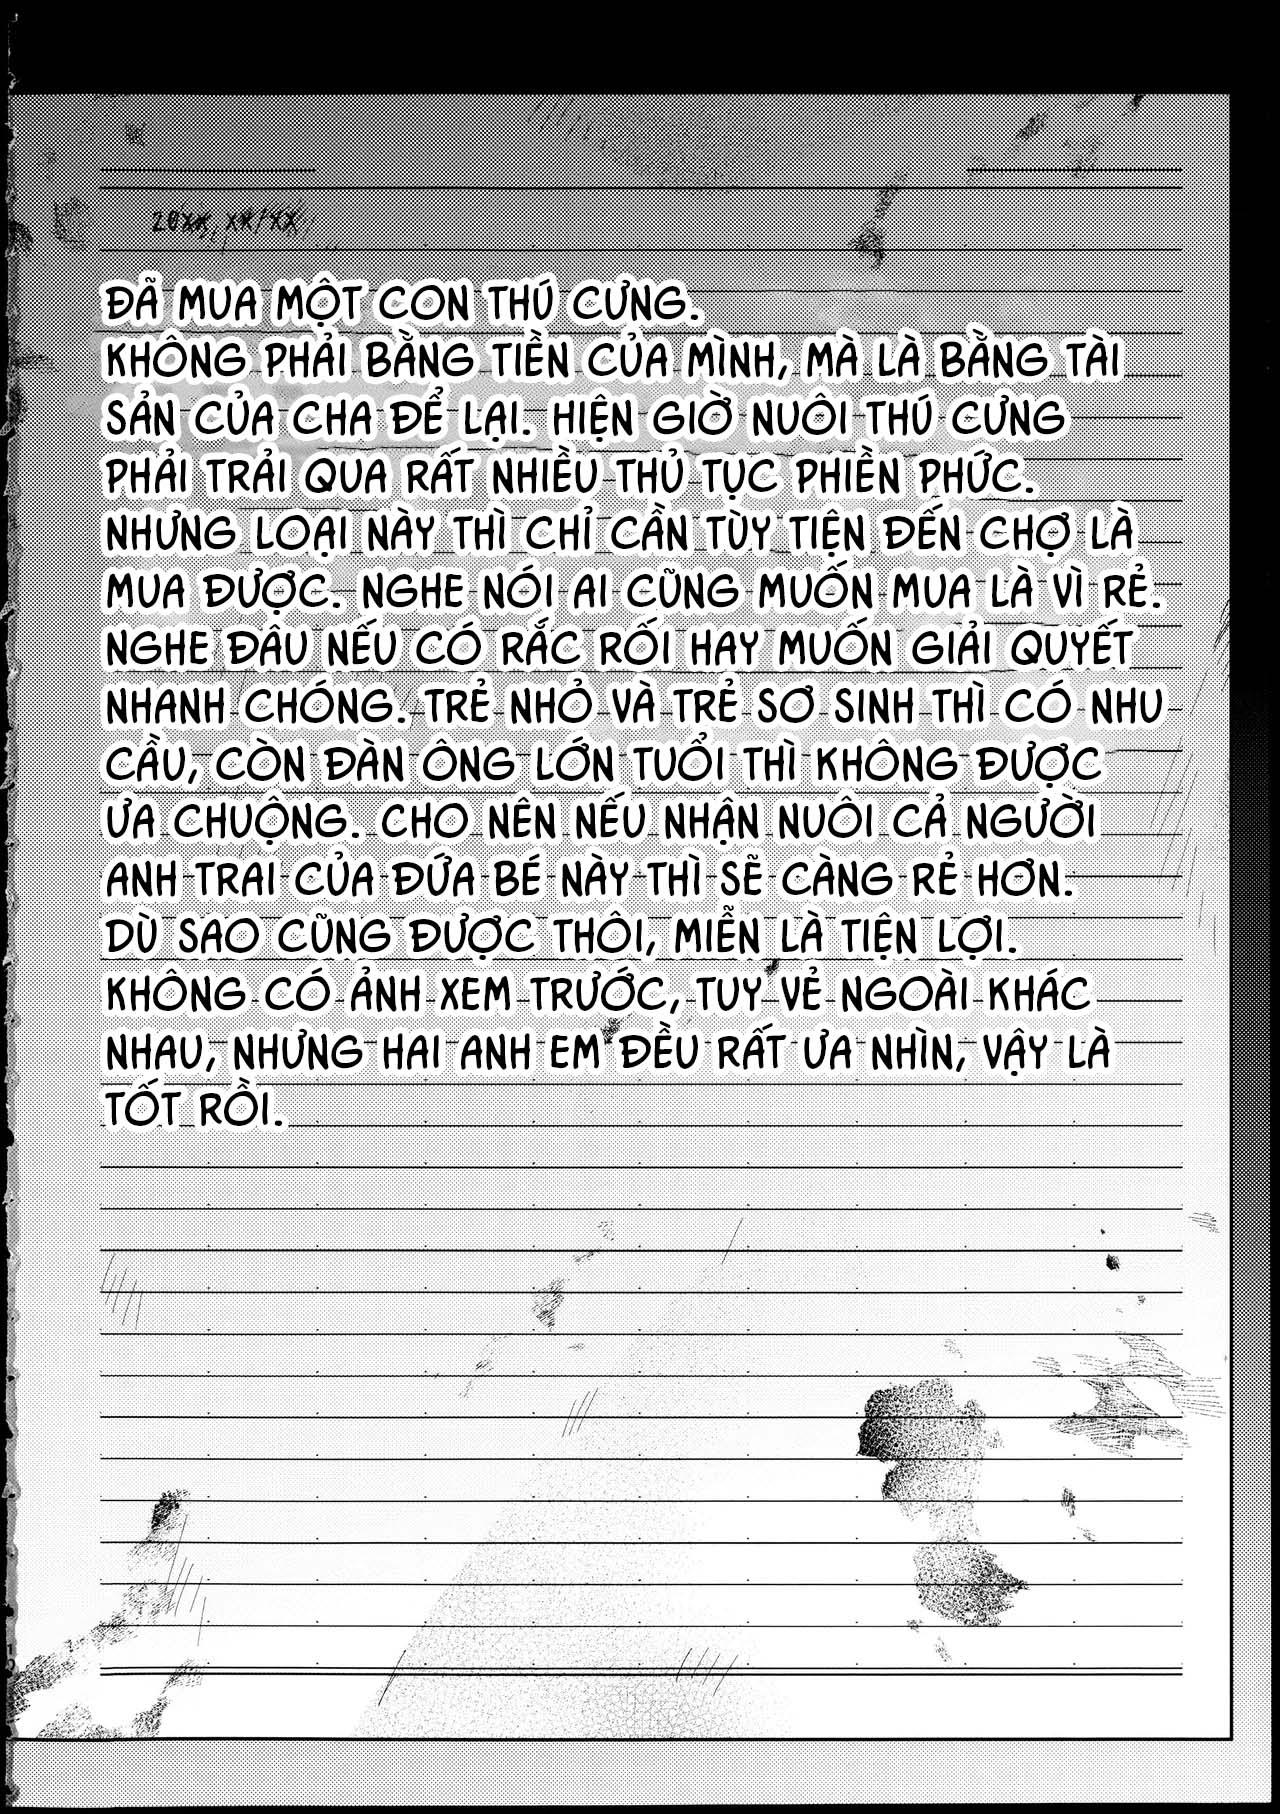 20XX, XX/XX
ĐÃ MUA MỘT CON THÚ CƯNG.
KHÔNG PHẢI BẰNG TIỀN CỦA MÌNH, MÀ LÀ BẰNG TÀI
SẢN CỦA CHA ĐỂ LẠI. HIỆN GIỜ NUÔI THÚ CƯNG
PHẢI TRẢI QUA RẤT NHIỀU THỦ TỤC PHIỀN PHỨC.
NHƯNG LOẠI NÀY THÌ CHỈ CẦN TÙY TIỆN ĐẾN CHỢ LÀ
MUA ĐƯỢC. NGHE NÓI AI CŨNG MUỐN MUA LÀ VÌ RẺ.
NGHE ĐÂU NẾU CÓ RẮC RỐI HAY MUỐN GIẢI QUYẾT
NHANH CHÓNG. TRẺ NHỎ VÀ TRẺ SƠ SINH THÌ CÓ NHU
CẦU, CÒN ĐÀN ÔNG LỚN TUỔI THÌ KHÔNG ĐƯỢC
ƯA CHUỘNG. CHO NÊN NẾU NHẬN NUÔI CẢ NGƯỜI
ANH TRAI CỦA ĐỨA BÉ NÀY THÌ SẼ CÀNG RẺ HƠN.
DÙ SAO CŨNG ĐƯỢC THÔI, MIỄN LÀ TIỆN LỢI.
KHÔNG CÓ ẢNH XEM TRƯỚC, TUY VẺ NGOÀI KHÁC
NHAU, NHƯNG HAI ANH EM ĐỀU RẤT ƯA NHÌN, VẬY LÀ
TỐT RỒI.